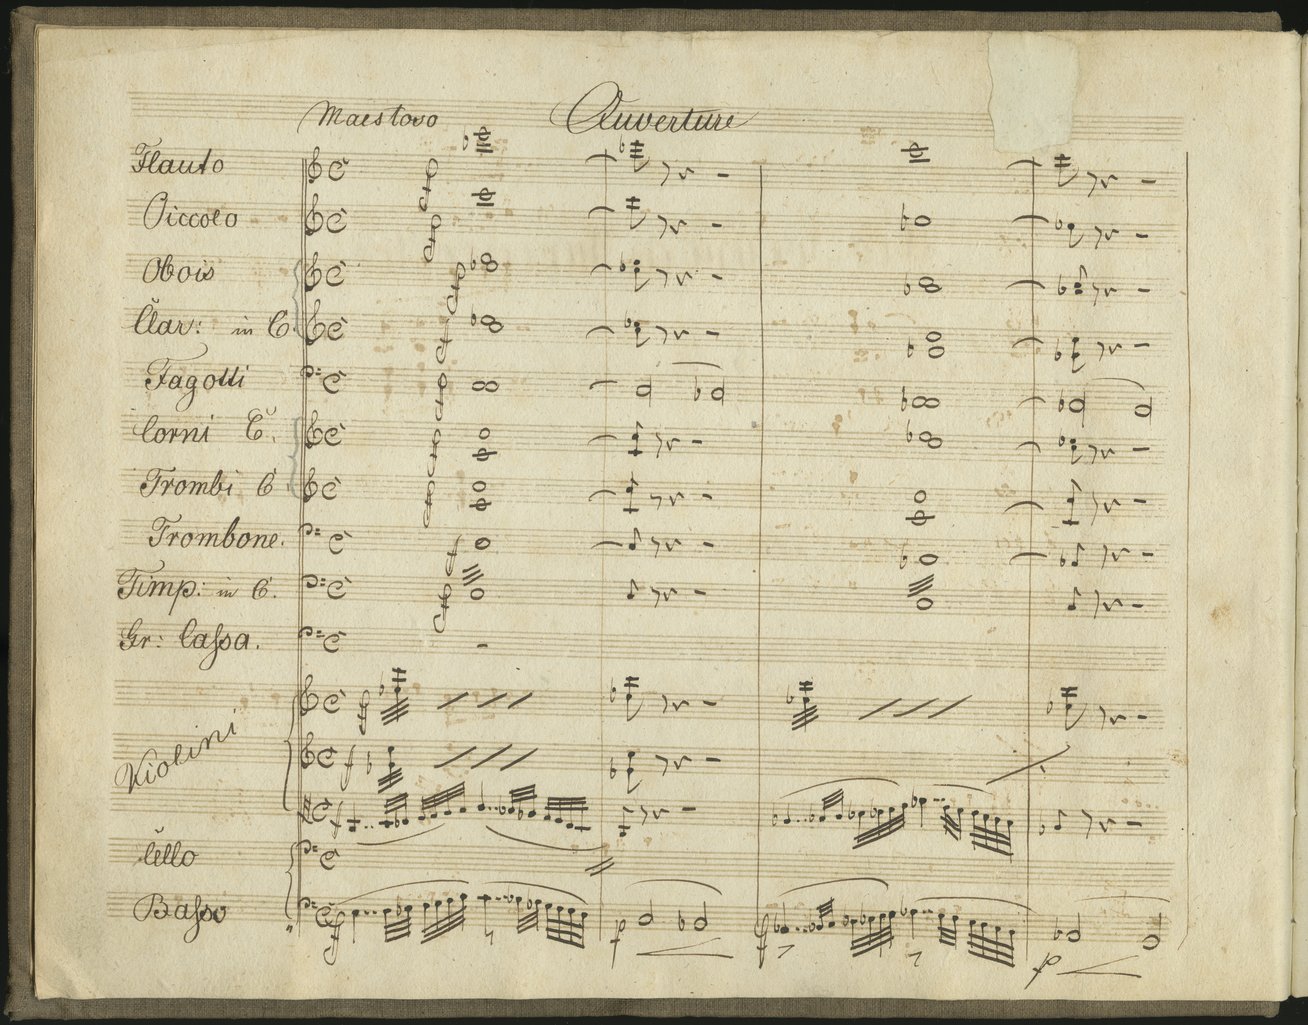 Maestoso Ouverture
Flauto
Piccolo
Obois
Clar: in C.
Fagotti
Corni C.
Trombi C
Trombone.
Timp: in C.
Gr: Cassa.
Violini
f
f
Cello
Basso
p
p